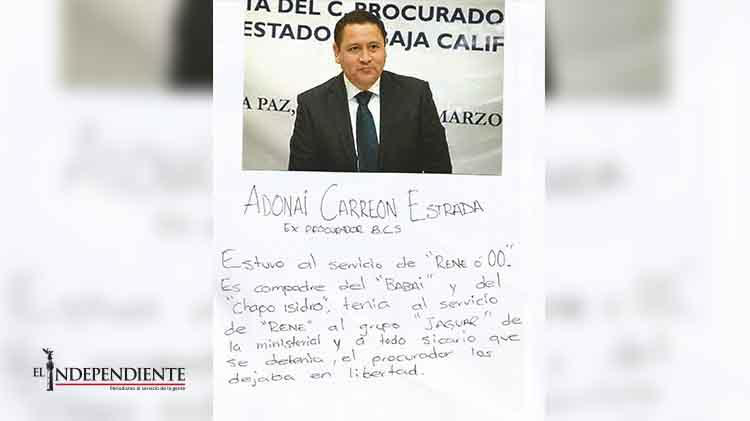 TA DEL C. PROCURADO
ESTADO BAJA CALIF
A PAZ, MARZO
ADONAÍ CARREON ESTRADA
EX PROCURADOR B.C.S
Estuvo al servicio de "RENE ó 00".
Es compadre del "BABAI" y del
"Chapo Isidro", tenía al servicio
de "RENE" al grupo "JAGUAR" de
la ministerial y a todo sicario que
se detenía, el procurador los
dejaba en libertad.
EL INDEPENDIENTE
Periodistas al servicio de la gente